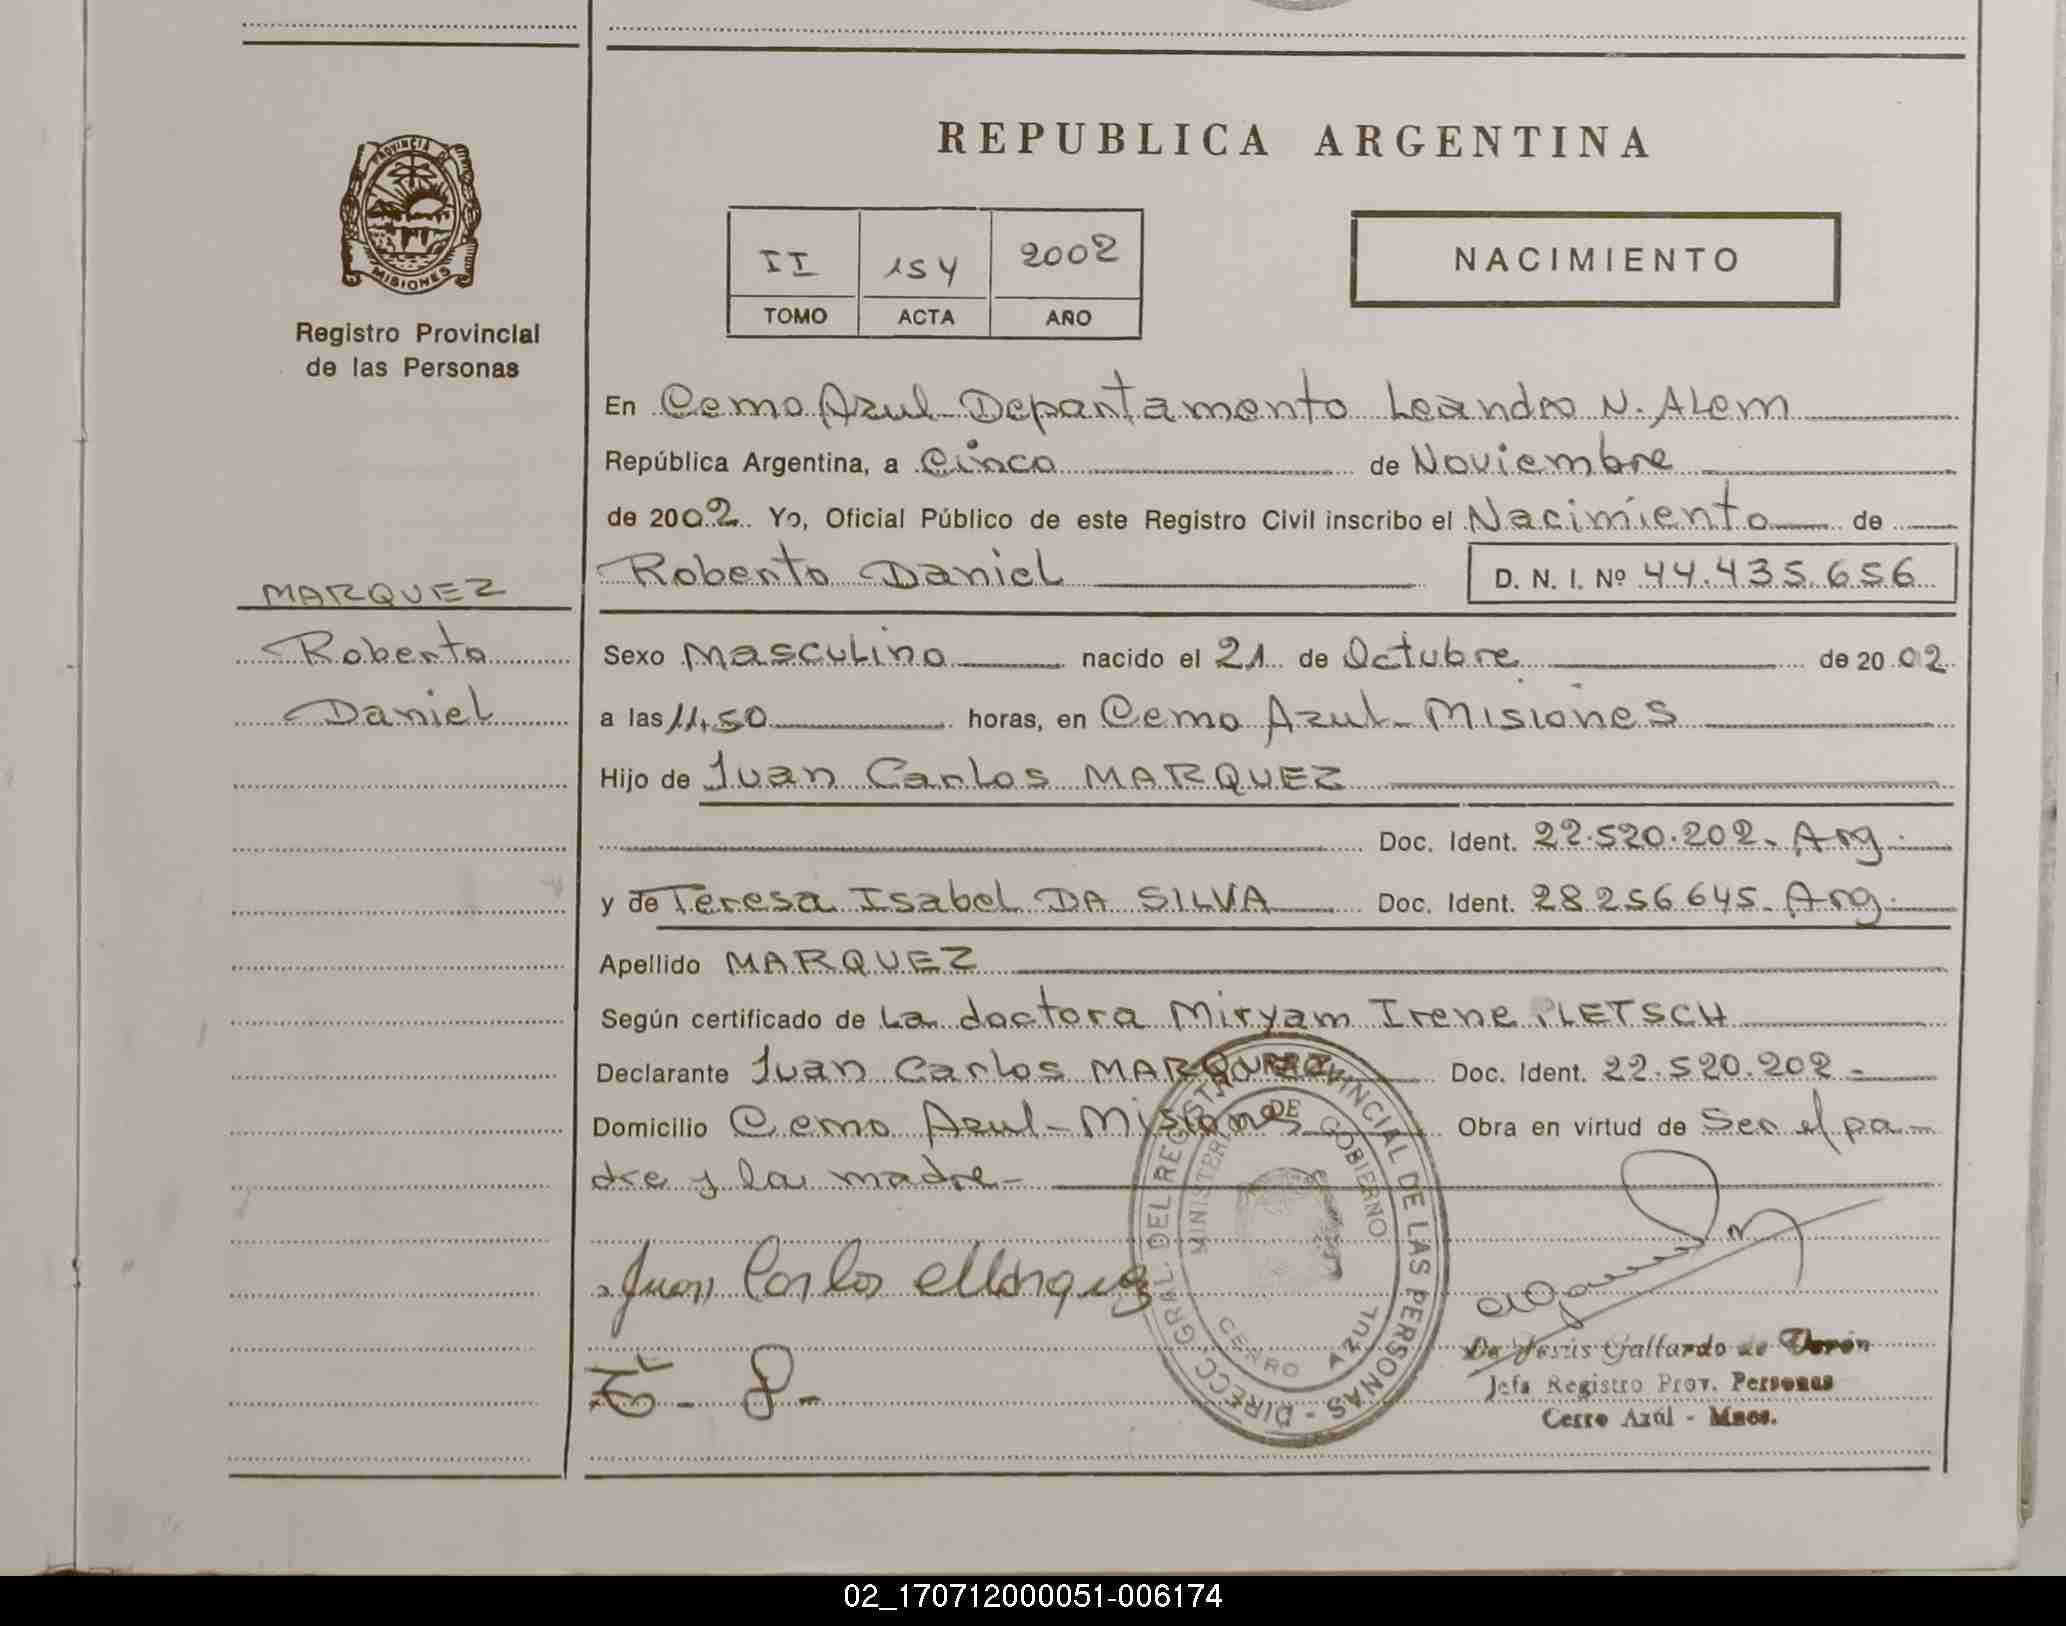 REPUBLICA ARGENTINA
PROVINCIA DE
MISIONES
Registro Provincial
de las Personas
II 154 2002
TOMO ACTA AÑO
NACIMIENTO
En Cerro Azul - Departamento Leandro N. ALem
República Argentina, a Cinco de Noviembre
de 2002. Yo, Oficial Público de este Registro Civil inscribo el Nacimiento de
Roberto Daniel D. N. I. Nº 44.435.656
MARQUEZ
Roberto
Daniel
Sexo Masculino nacido el 21 de Octubre de 2002
a las 11,50 horas, en Cerro Azul - Misiones
Hijo de Juan Carlos MARQUEZ
Doc. Ident. 22.520.202 - Arg.
y de Teresa Isabel DA SILVA Doc. Ident. 28.256.645 - Arg.
Apellido MARQUEZ
Según certificado de La doctora Miryam Irene PLETSCH
Declarante Juan Carlos MARQUEZ Doc. Ident. 22.520.202 -
Domicilio Cerro Azul - Misiones Obra en virtud de Ser el pa-
dre y la madre -
Juan Carlos Marquez
DIRECC. GRAL. DEL REGISTRO PROVINCIAL DE LAS PERSONAS -
MINISTERIO DE GOBIERNO
CERRO AZUL
Jesús Gallardo de Verón
Jefa Registro Prov. Personas
Cerro Azúl - Mnes.
02_170712000051-006174